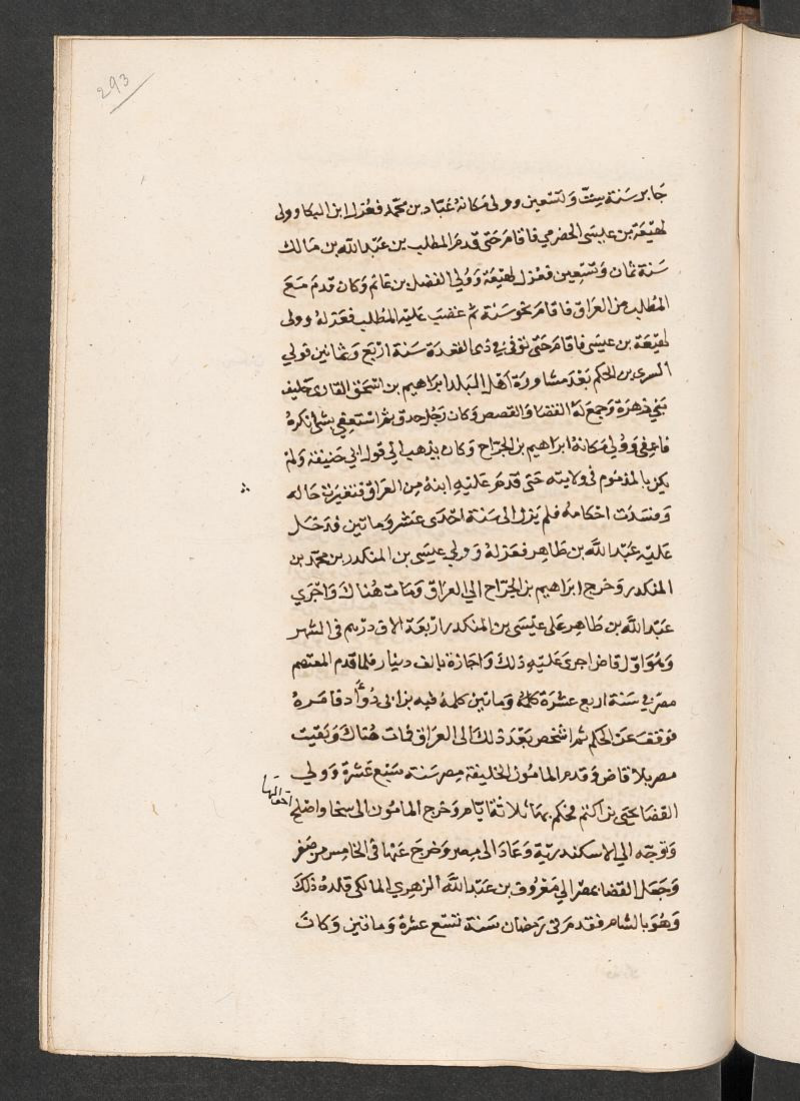 293
جابر سنة ست وتسعين وولى مكانه عباد بن محمد فعزل ابن البكا وولى
لهيعة بن عيسى الحضرمي فاقام حتى قدم المطلب بن عبد الله بن مالك
سنة ثمان وتسعين فعزل لهيعة وولي الفضل بن غانم وكان قدم مع
المطلب من العراق فاقام نحو سنة ثم غضب عليه المطلب فعزله وولى
لهيعة بن عيسى فاقام حتى توفى في ذى القعدة سنة اربع وثمانين فولي
السرى بن الحكم بعد مشاورة اهل البلد ابراهيم بن اسحق القارى حليف
بني زهرة وجمع له القضا والقصص وكان رجل صدق ثم استعفي بشى انكره
فاعفى وولي مكانه ابراهيم بن الجراح وكان يذهب الى قول ابي حنيفة ولم
يكن بالمذموم في ولايته حتى قدم عليه ابنه من العراق فتغيرت حاله
وفسدت احكامه فلم يزل الى سنة احدى عشر وماتين فدخل
عليه عبد الله بن طاهر فعزله وولي عيسى بن المنكدر بن محمد بن
المنكدر وخرج ابراهيم بن الجراح الي العراق ومات هناك واجري
عبد الله بن طاهر على عيسى بن المنكدر اربعة الاف درهم في الشهر
وهو اول قاض اجرى عليه ذلك واجازه بالف دينار فلما قدم المعتصم
مصر في سنة اربع عشرة وماتين كلمه فيه بن ابى دُؤَاد فامره
فوقف عن الحكم ثم اشخص بعد ذلك الى العراق فمات هناك وبقيت
مصر بلا قاض وقدم المامون الخليفة مصر سنة سبع عشرة وولي
القضا يحيى بن اكثم فحكم بها ثلاثة ايام وخرج المامون الى سخا واصلح
احوالها
وتوجه الي الاسكندرية وعاد الى مصر وخرج عنها في الخامس من صفر
وجعل القضا بمصر الي معروف بن عبد الله الزهري المالكى قلده ذلك
وهو بالشام فقدم في رمضان سنة تسع عشرة وماتين وكان